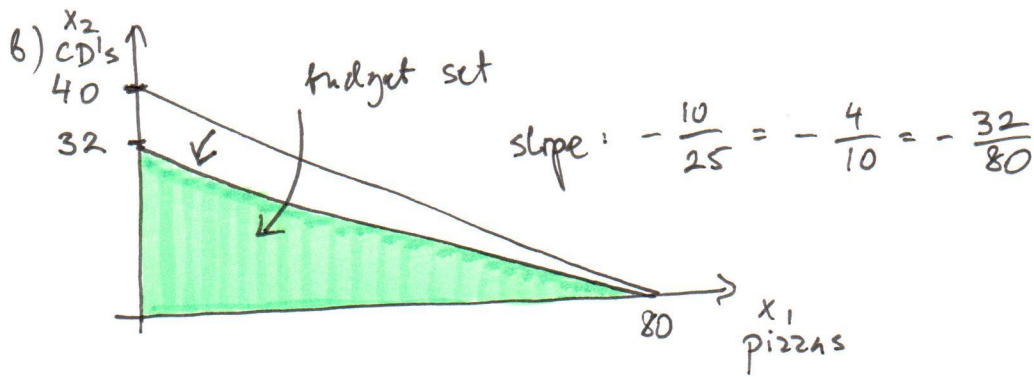 b) x₂
CD's
40
32
budget set
slope: - 10/25 = - 4/10 = - 32/80
80
x₁
pizzas